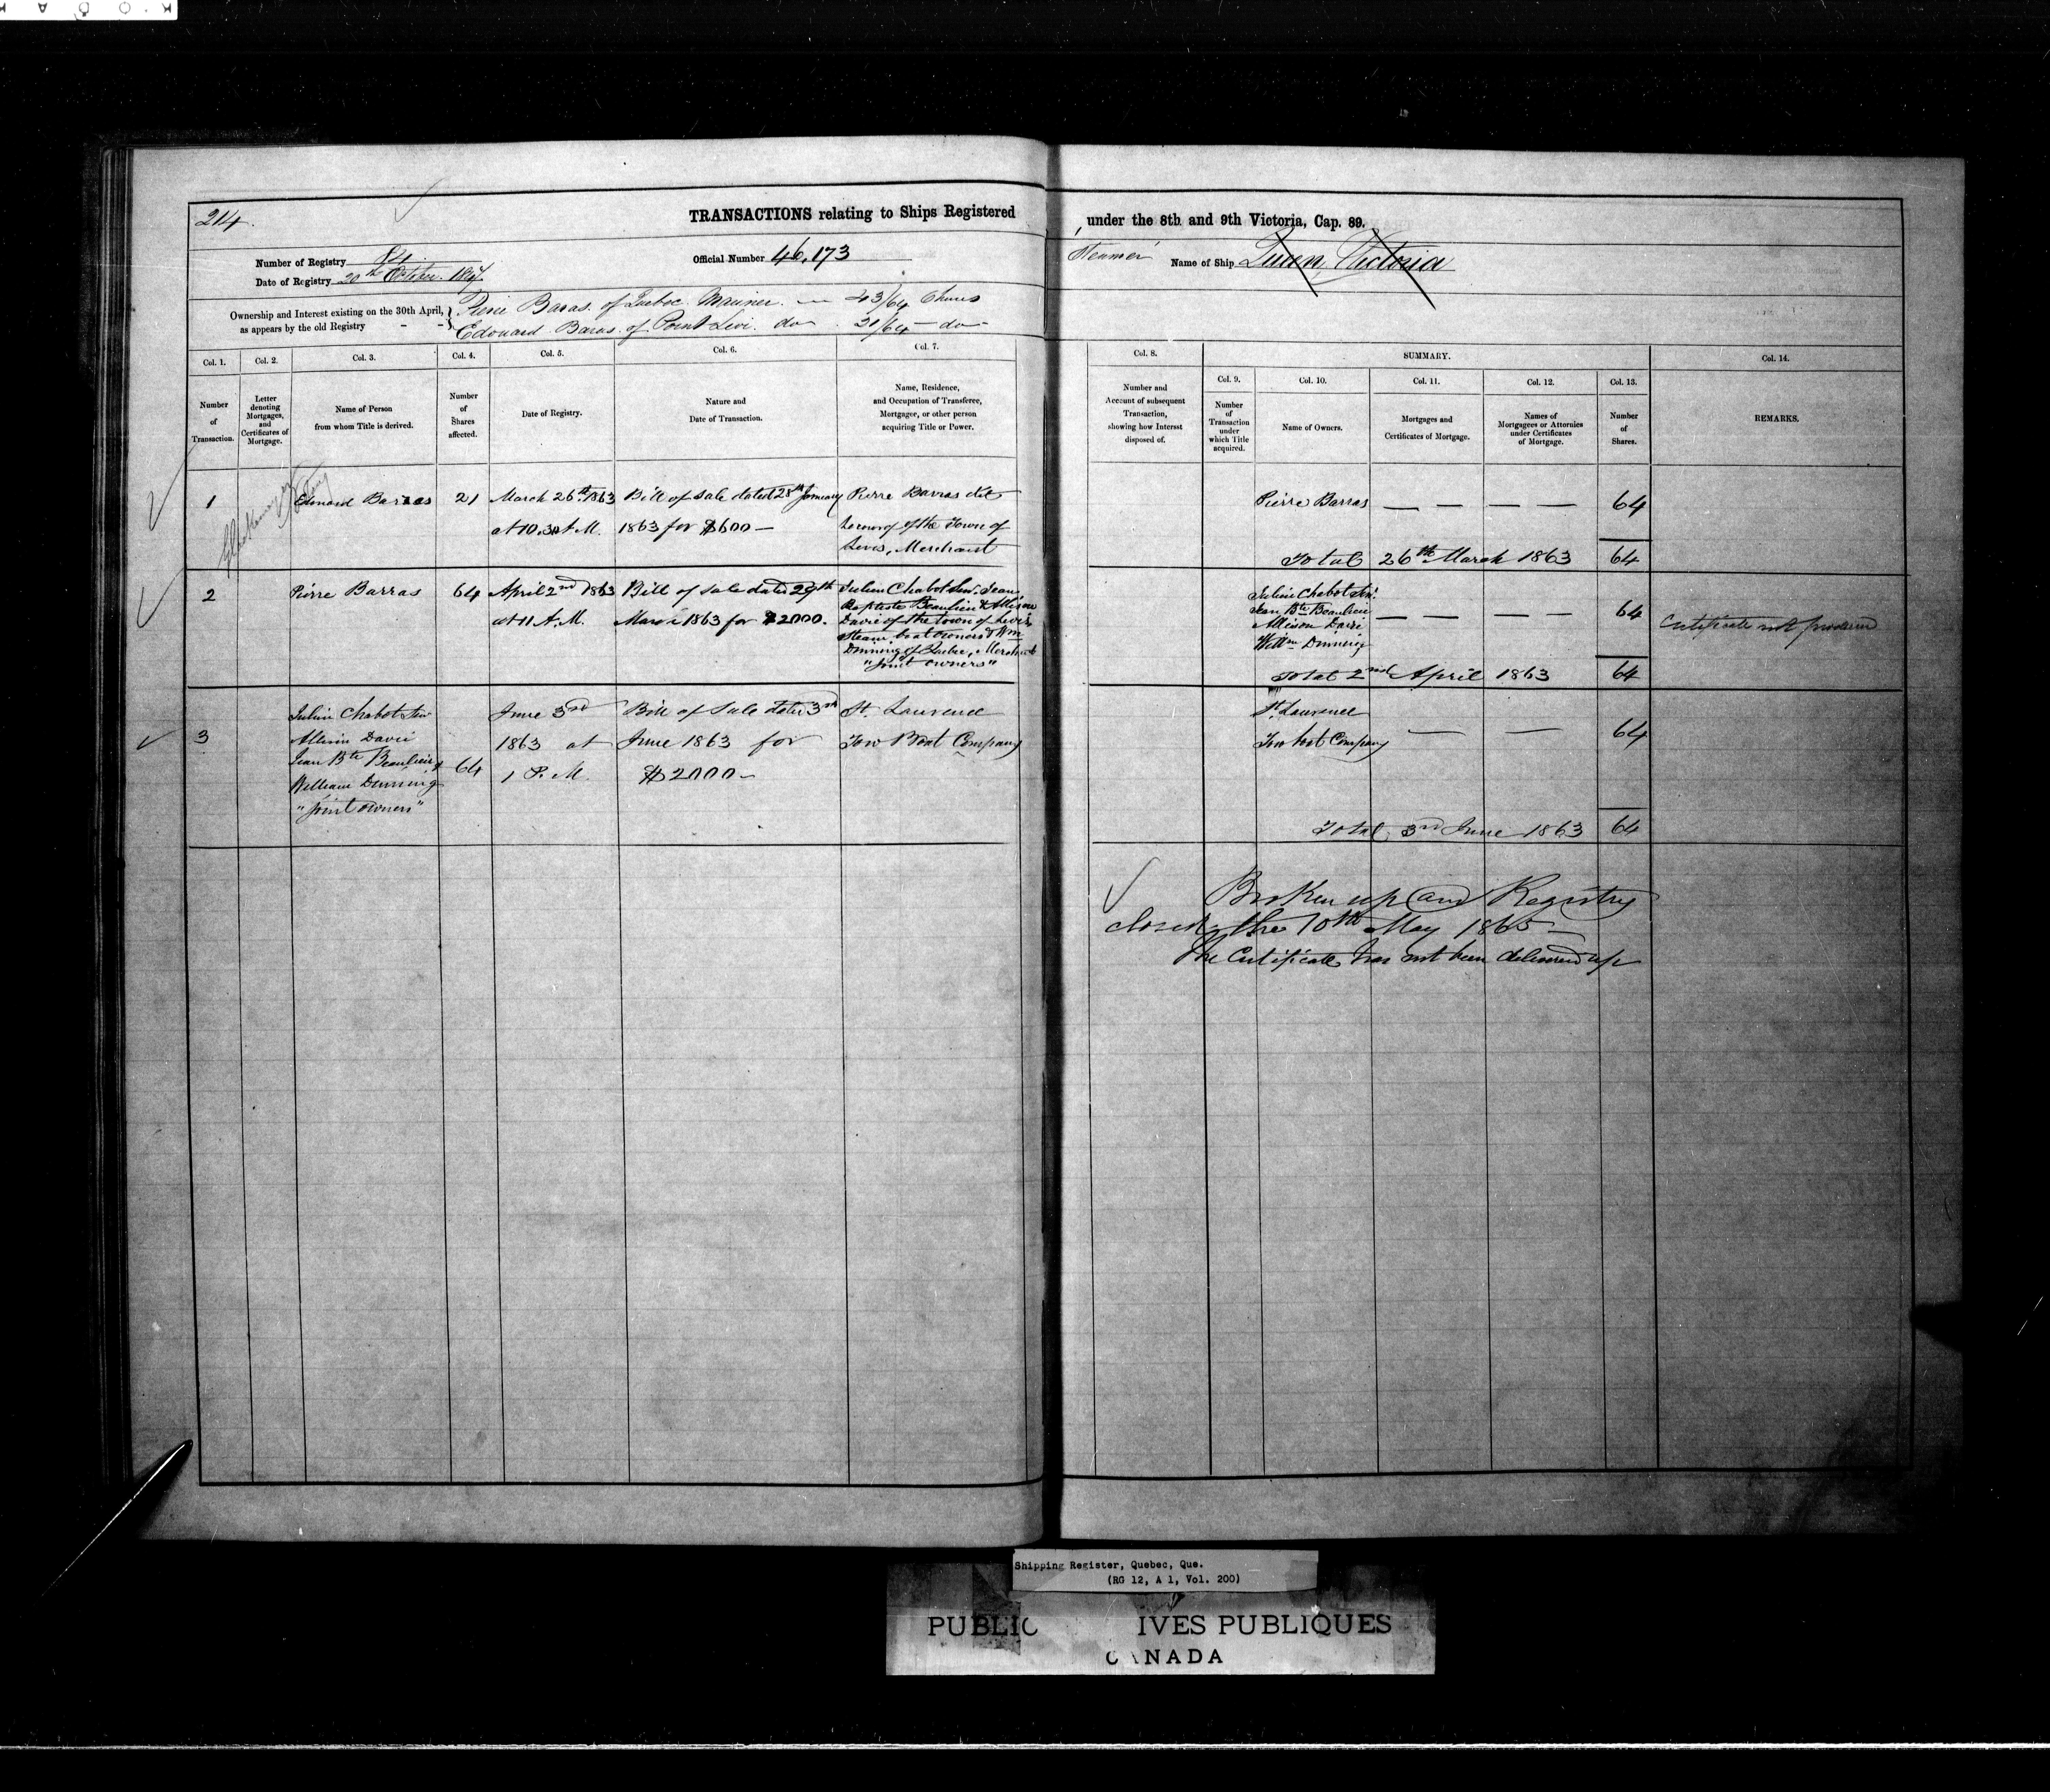 214.
TRANSACTIONS relating to Ships Registered under the 8th and 9th Victoria, Cap. 89.
Number of Registry 84
Official Number 46,173
Steamer Name of Ship Queen Victoria
Date of Registry 20th October 1847
Ownership and Interest existing on the 30th April,
as appears by the old Registry - -
Pierre Baras. of Quebec. Mariner. 43/64 Shares
Edouard Baras. of Point Levi. do 21/64 do
Col. 1.
Number
of
Transaction.
Col. 2.
Letter
denoting
Mortgages,
and
Certificates of
Mortgage.
Col. 3.
Name of Person
from whom Title is derived.
Col. 4.
Number
of
Shares
affected.
Col. 5.
Date of Registry.
Col. 6.
Nature and
Date of Transaction.
Col. 7.
Name, Residence,
and Occupation of Transferee,
Mortgagee, or other person
acquiring Title or Power.
Col. 8.
Number and
Account of subsequent
Transaction,
showing how Interest
disposed of.
SUMMARY.
Col. 9.
Number
of
Transaction
under
which Title
acquired.
Col. 10.
Name of Owners.
Col. 11.
Mortgages and
Certificates of Mortgage.
Col. 12.
Names of
Mortgagees or Attornies
under Certificates
of Mortgage.
Col. 13.
Number
of
Shares.
Col. 14.
REMARKS.
1
Edouard Barras
21
March 26th 1863
at 10.30 A.M.
Bill of Sale dated 28th January
1863 for $600 —
Pierre Barras dit
of the Town of
Levis, Merchant
Pierre Barras — — — — 64
Total 26th March 1863 64
2
Pierre Barras
64
April 2nd 1863
at 11 A.M.
Bill of Sale dated 29th
March 1863 for $2000.
Julien Chabot Senr. Jean
Baptiste Beaulieu & Allison
Davie of the town of Levis,
Steam boat owners & Wm
Dinning of Quebec, Merchant
"Joint owners"
Julien Chabot Senr.
Jean Bte Beaulieu
Allison Davie
Willm Dinning
— — — — 64
Certificate not produced
Total 2nd April 1863 64
3
Julien Chabot Senr
Allison Davie
Jean Bte Beaulieu &
William Dinning
"Joint owners"
64
June 3rd
1863 at
1 P.M.
Bill of Sale dated 3rd
June 1863 for
$2000 —
St. Lawrence
Tow Boat Company
St. Lawrence
Tow boat Company — — 64
Total 3rd June 1863 64
Broken up and Registry
closed the 10th May 1865 —
The Certificate has not been delivered up
Shipping Register, Quebec, Que.
(RG 12, A 1, Vol. 200)
PUBLIC IVES PUBLIQUES
CANADA